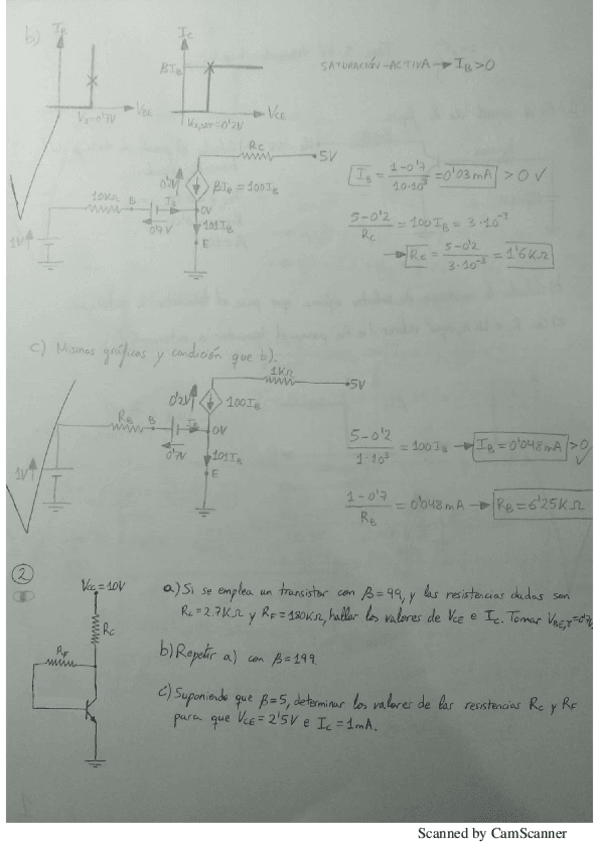 b) I_B
I_C
βI_B
V_BE
V_γ=0'7V
V_CE
V_CE,SAT=0'2V
SATURACIÓN-ACTIVA → I_B>0
R_C
5V
0'2V
βI_B = 100I_B
10KΩ B I_B 0V
0'7V
101I_B
E
1V
I_B = (1-0'7)/(10·10³) = 0'03mA > 0 ✓
(5-0'2)/R_C = 100I_B = 3·10⁻³
→ R_C = (5-0'2)/(3·10⁻³) = 1'6KΩ
c) Mismas gráficas y condición que b).
1KΩ
5V
0'2V
100I_B
R_B B I_B 0V
0'7V
101I_B
E
1V
(5-0'2)/(1·10³) = 100I_B → I_B=0'048mA >0 ✓
(1-0'7)/R_B = 0'048mA → R_B=6'25KΩ
2
V_CC=10V
R_C
R_F
a) Si se emplea un transistor con β=99, y las resistencias dadas son
R_C=2.7KΩ y R_F=180KΩ, hallar los valores de V_CE e I_C. Tomar V_BE,γ=0'7V
b) Repetir a) con β=199.
c) Suponiendo que β=5, determinar los valores de las resistencias R_C y R_F
para que V_CE=2'5V e I_C=1mA.
Scanned by CamScanner